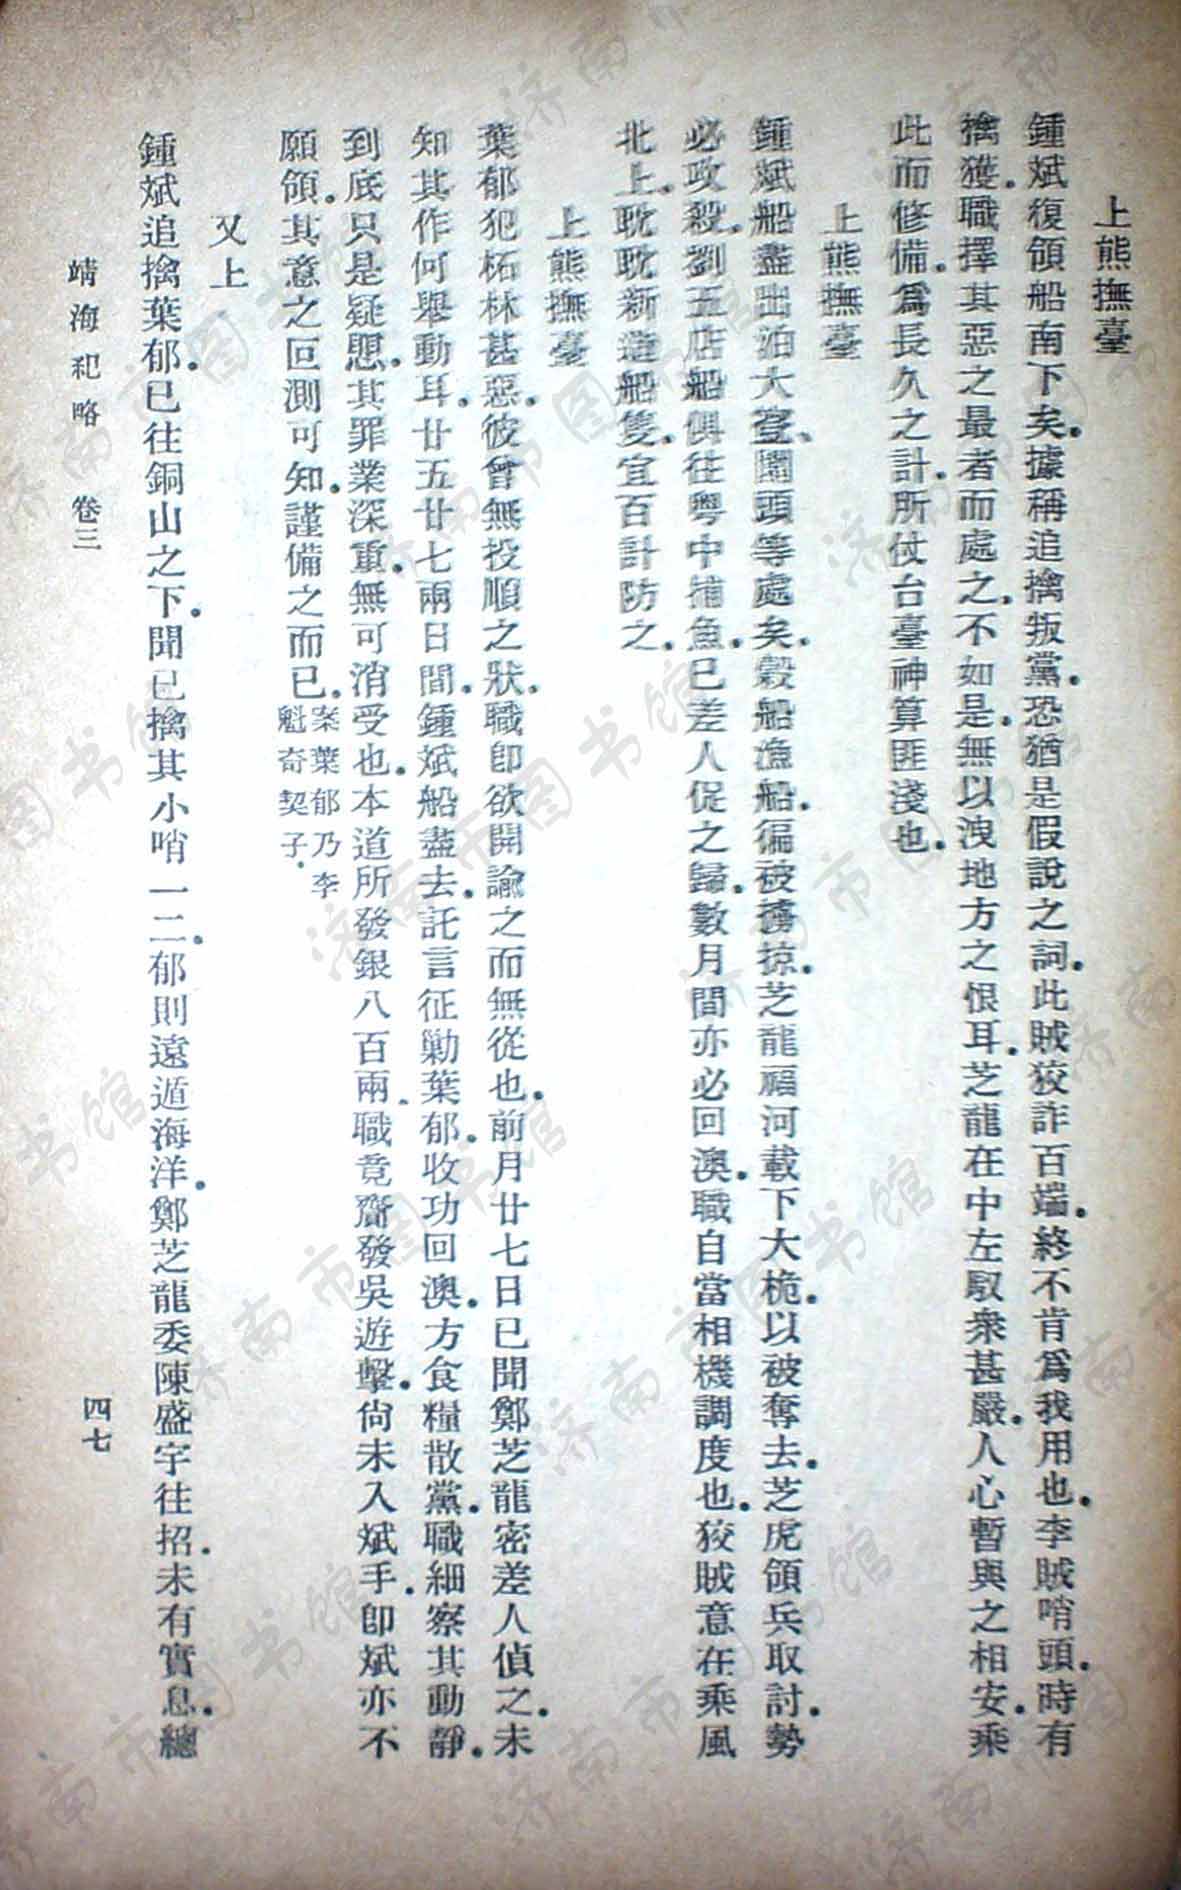 上熊撫臺
鍾斌復領船南下矣據稱追擒叛黨恐猶是假說之詞此賊狡詐百端終不肯爲我用也李賊哨頭時有
擒獲職擇其惡之最者而處之不如是無以洩地方之恨耳芝龍在中左馭衆甚嚴人心暫與之相安乘
此而修備爲長久之計所仗台臺神算匪淺也
上熊撫臺
鍾斌船盡出泊大登圍頭等處矣穀船漁船徧被擄掠芝龍福河載下大桅以被奪去芝虎領兵取討勢
必攻殺劉五店船俱往粤中捕魚已差人促之歸數月間亦必回澳職自當相機調度也狡賊意在乘風
北上耽耽新造船隻宜百計防之
上熊撫臺
葉郁犯柘林甚惡彼曾無投順之狀職卽欲開諭之而無從也前月廿七日已聞鄭芝龍密差人偵之未
知其作何舉動耳廿五廿七兩日間鍾斌船盡去託言征勦葉郁收功回澳方食糧散黨職細察其動靜
到底只是疑愳其罪業深重無可消受也本道所發銀八百兩職竟齎發吳遊擊尙未入斌手卽斌亦不
願領其意之叵測可知謹備之而已案葉郁乃李魁奇契子
又上
鍾斌追擒葉郁已往銅山之下聞已擒其小哨一二郁則遠遁海洋鄭芝龍委陳盛宇往招未有實息總
靖海紀略 卷三
四七
济南市图书馆